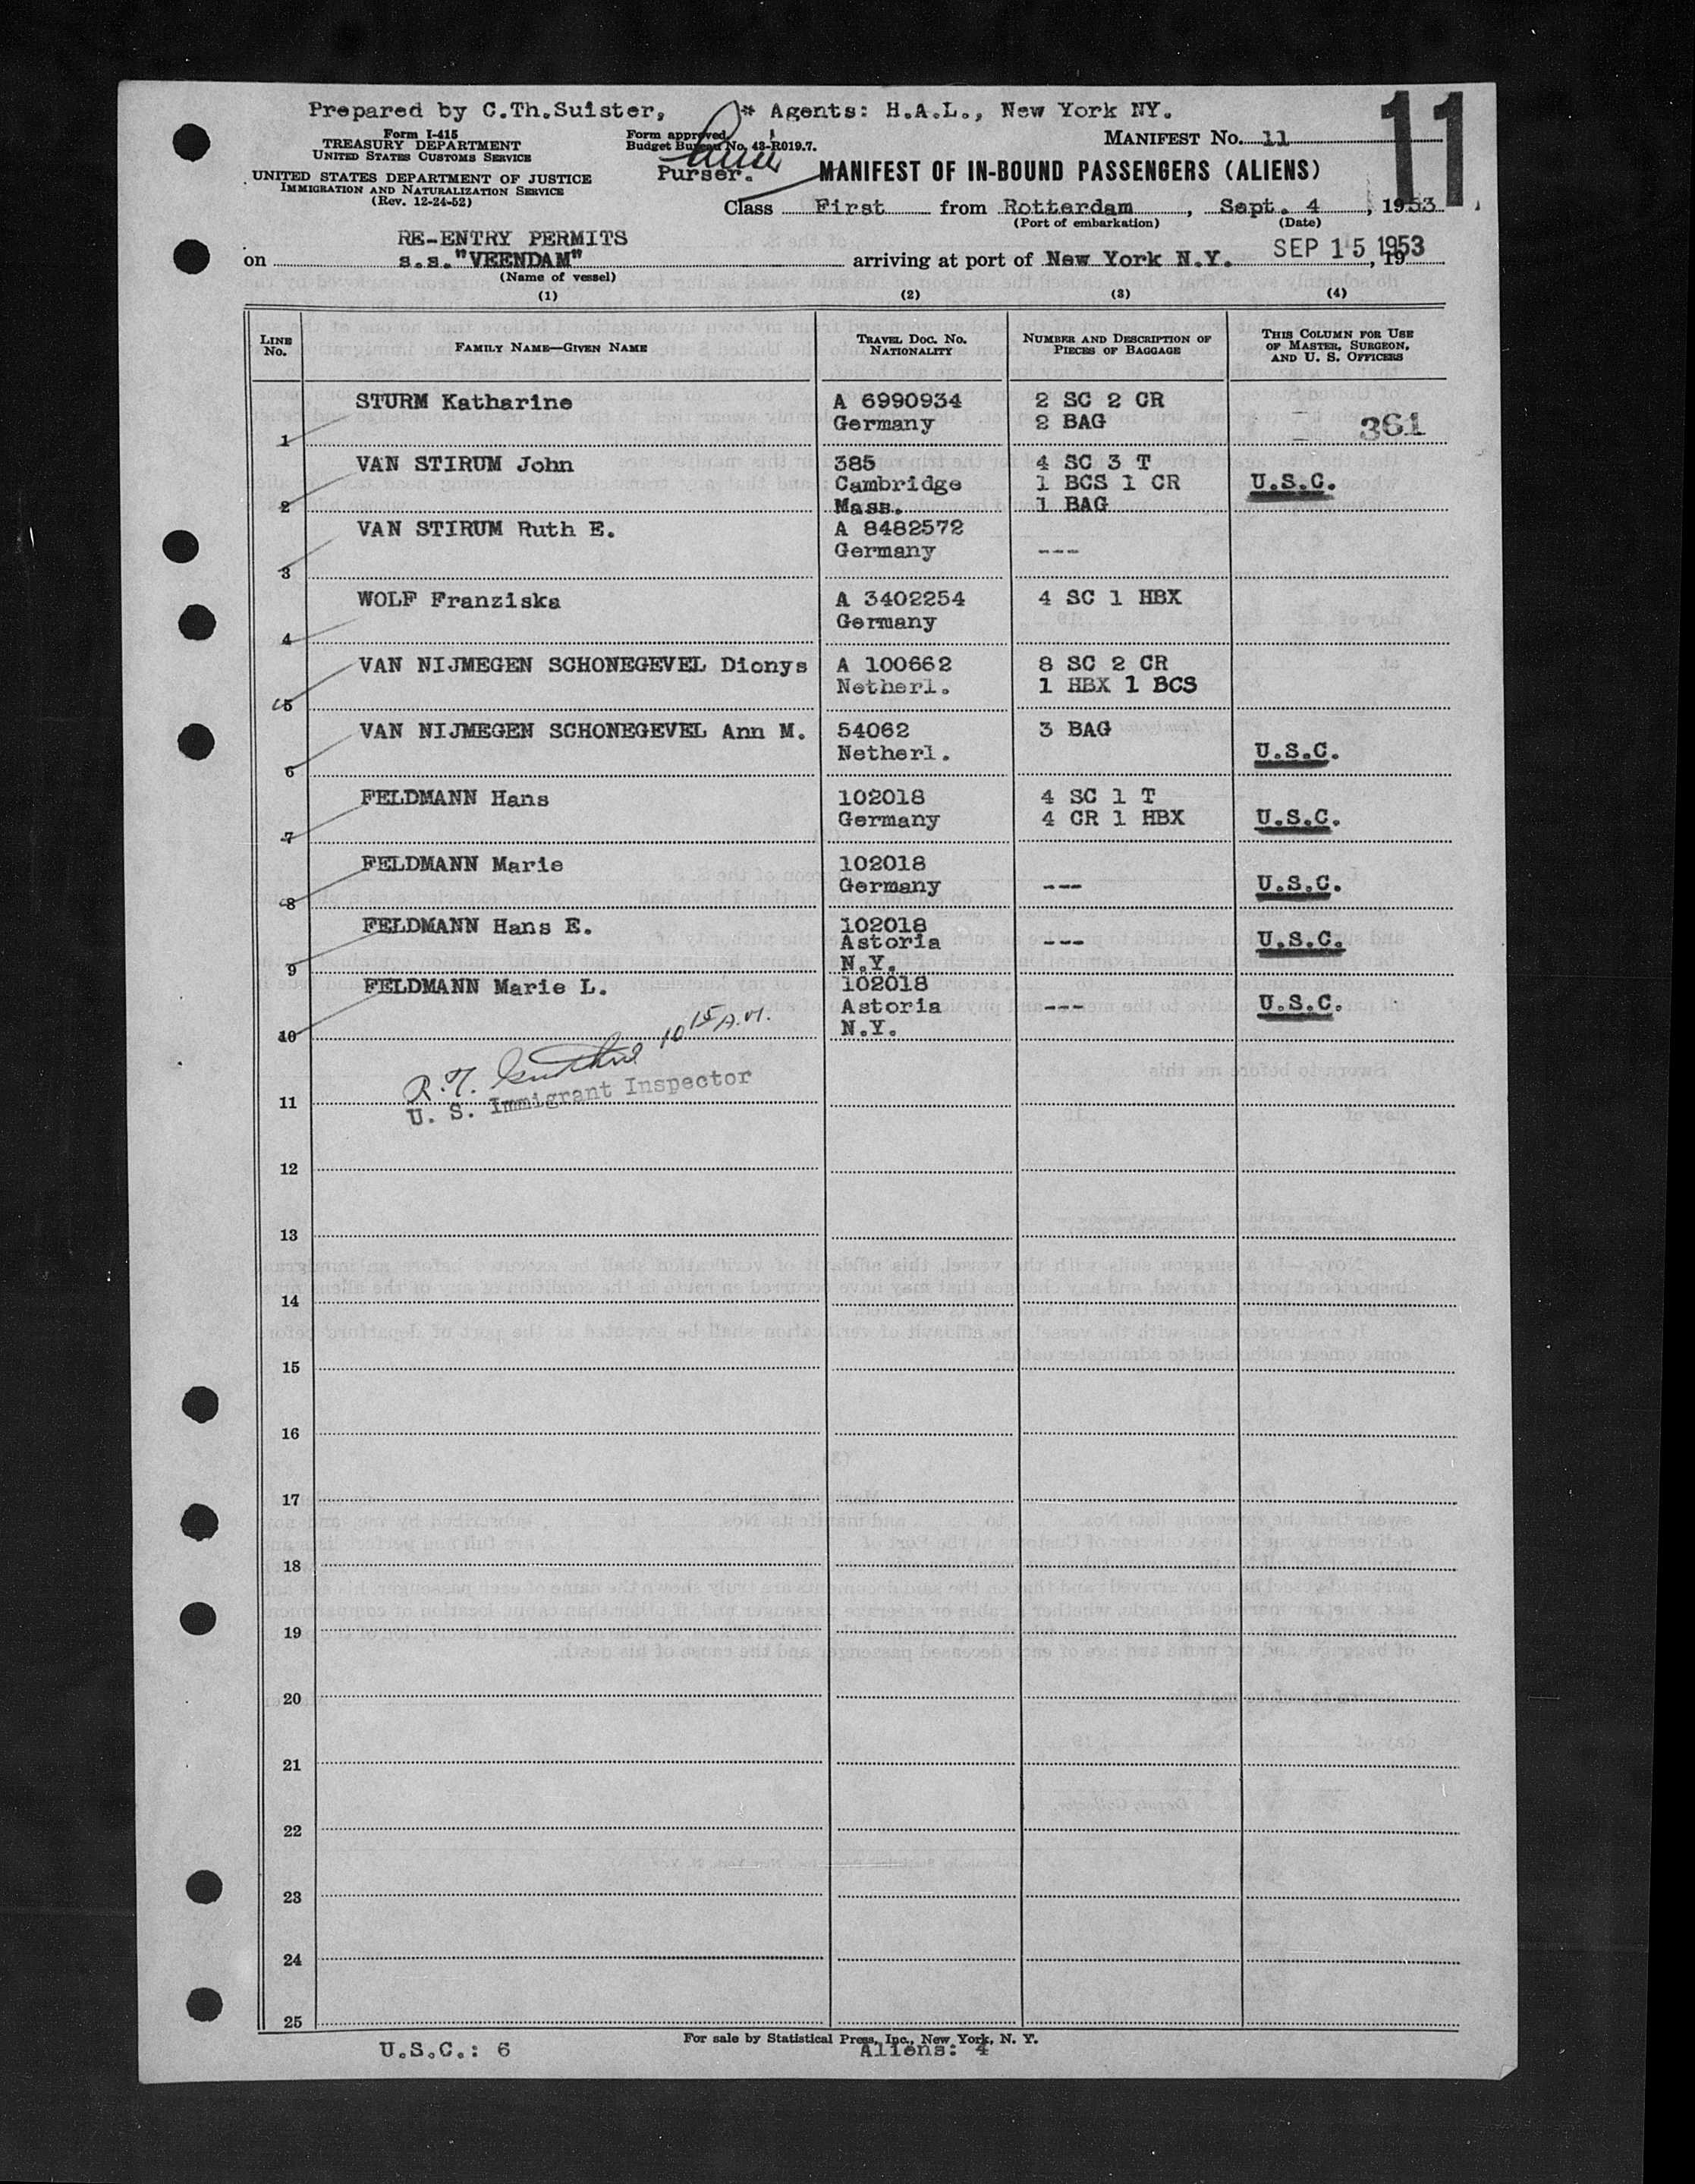 Prepared by C.Th.Suister, * Agents: H.A.L., New York NY.
Form I-415
TREASURY DEPARTMENT
UNITED STATES CUSTOMS SERVICE
UNITED STATES DEPARTMENT OF JUSTICE
IMMIGRATION AND NATURALIZATION SERVICE
(Rev. 12-24-52)
Form approved.
Budget Bureau No. 43-R019.7.
Purser.
MANIFEST No. 11
11
MANIFEST OF IN-BOUND PASSENGERS (ALIENS)
Class First from Rotterdam, Sept. 4, 1953
(Port of embarkation) (Date)
RE-ENTRY PERMITS
on s.s."VEENDAM" arriving at port of New York N.Y. SEP 15 1953, 19
(Name of vessel)
(1) (2) (3) (4)
LINE No. FAMILY NAME—GIVEN NAME TRAVEL DOC. NO. NATIONALITY NUMBER AND DESCRIPTION OF PIECES OF BAGGAGE THIS COLUMN FOR USE OF MASTER, SURGEON, AND U. S. OFFICERS
STURM Katharine A 6990934 2 SC 2 CR
1 Germany 2 BAG 361
VAN STIRUM John 385 4 SC 3 T
Cambridge 1 BCS 1 CR U.S.C.
2 Mass. 1 BAG
VAN STIRUM Ruth E. A 8482572
3 Germany ---
WOLF Franziska A 3402254 4 SC 1 HBX
4 Germany
VAN NIJMEGEN SCHONEGEVEL Dionys A 100662 8 SC 2 CR
5 Netherl. 1 HBX 1 BCS
VAN NIJMEGEN SCHONEGEVEL Ann M. 54062 3 BAG
6 Netherl. U.S.C.
FELDMANN Hans 102018 4 SC 1 T
7 Germany 4 CR 1 HBX U.S.C.
FELDMANN Marie 102018
8 Germany --- U.S.C.
FELDMANN Hans E. 102018
Astoria --- U.S.C.
9 N.Y.
FELDMANN Marie L. 102018
Astoria --- U.S.C.
10 N.Y.
10 15 A.M.
U. S. Immigrant Inspector
11
12
13
14
15
16
17
18
19
20
21
22
23
24
25
For sale by Statistical Press, Inc., New York, N. Y.
U.S.C.: 6 Aliens: 4